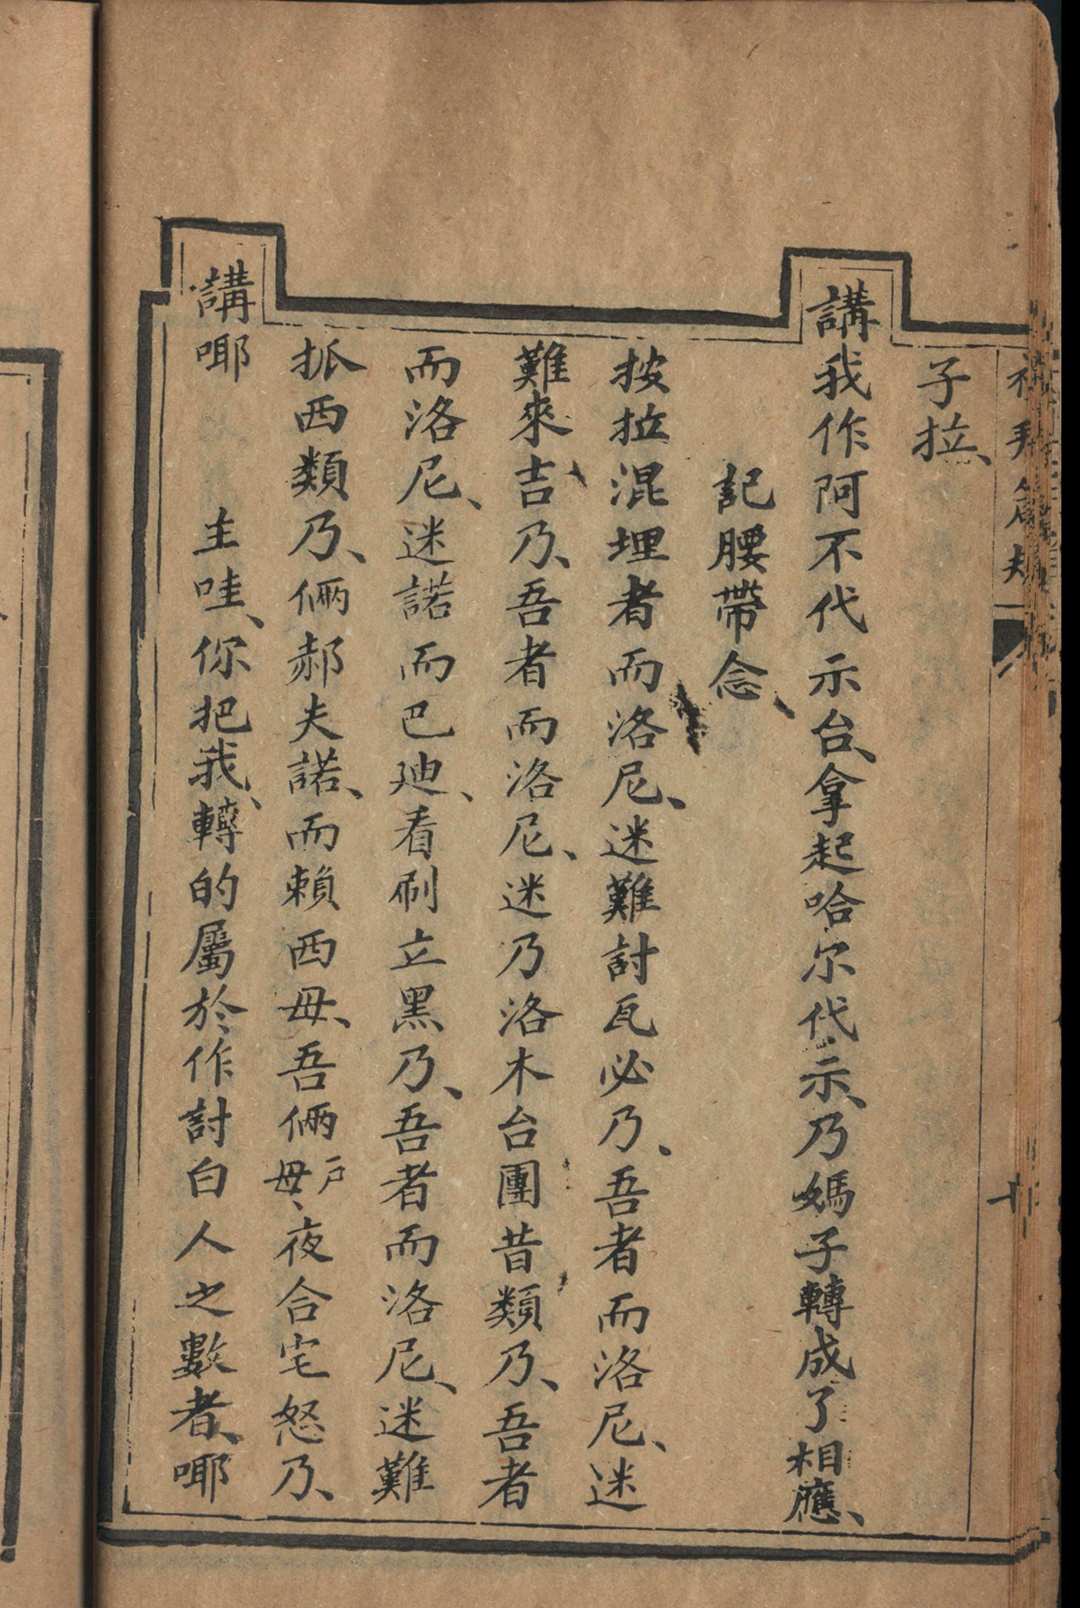 子拉、
講我作阿不代示台、拿起哈尔代示、乃媽子轉成了相應、
記腰帶念、
按拉混埋者而洛尼、迷難討瓦必乃、吾者而洛尼、迷
難來、吉乃、吾者而洛尼、迷乃洛木台團昔類乃、吾者
而洛尼、迷諾而巴迪、看刷立黑乃、吾者而洛尼、迷難
抓西類乃、倆郝夫諾、而賴西毋、吾倆戶毋、夜合宅怒乃、
講㖿 主哇、你把我、轉的屬於作討白人之數者、㖿